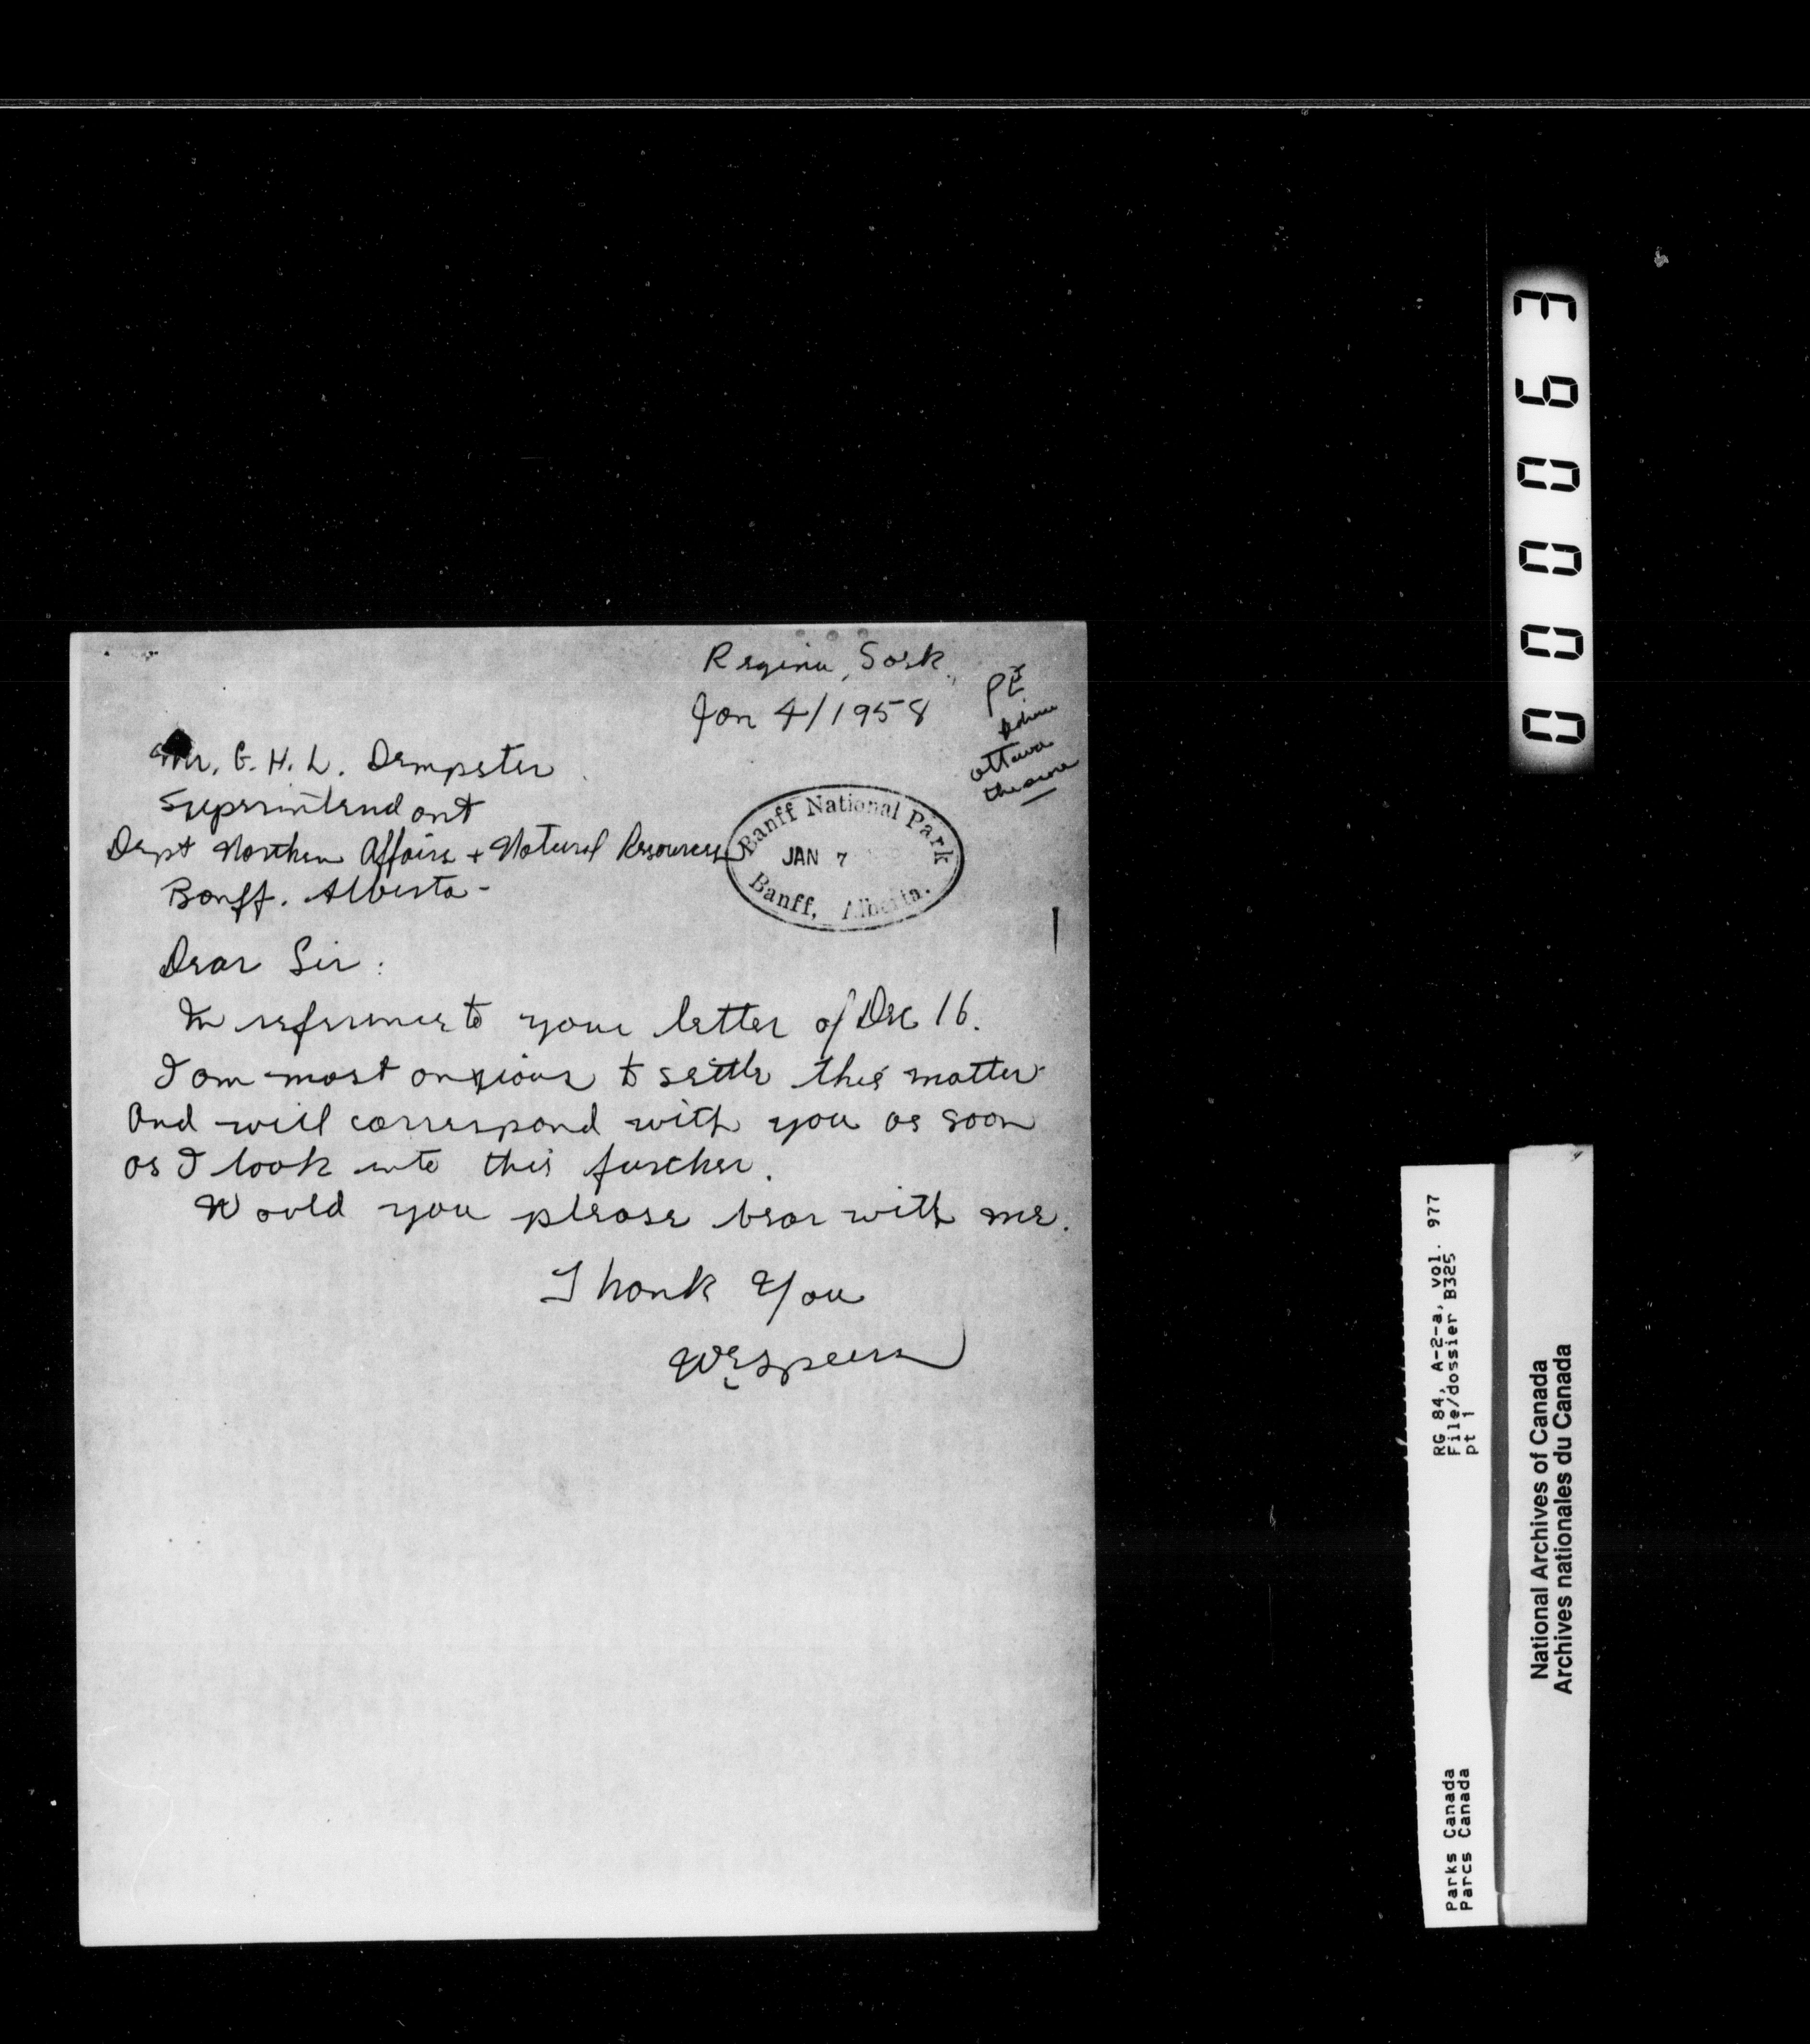 Regina, Sask.
Jan 4/1958
PE
advise
Ottawa
the same
Mr. G. H. L. Dempster
Superintendant
Dept Northern Affairs + Natural Resources
Banff. Alberta -
Banff National Park
JAN 7
Banff, Alberta.
Dear Sir:
In reference to your letter of Dec 16.
I am most anxious to settle this matter
and will correspond with you as soon
as I look into this further.
Would you please bear with me.
Thank You
000063
RG 84, A-2-a, vol. 977
File/dossier B325
pt 1
Parks Canada
Parcs Canada
National Archives of Canada
Archives nationales du Canada